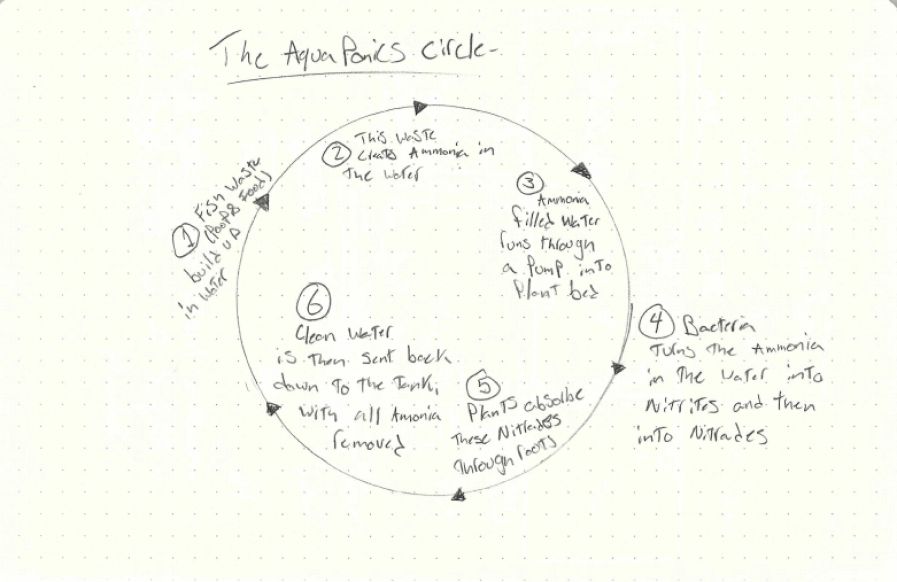 The AquaPonics Circle-
① Fish Waste
(Poop & Food)
build up
in Water
② This Waste
Creats Ammonia in
the Water
③ Ammonia
filled Water
runs through
a Pump into
Plant bed
④ Bacteria
Turns The Ammonia
in The Water into
Nitrites and then
into Nitrades
⑤ Plants absolbe
These Nitrades
through roots
⑥
Clean Water
is Then Sent back
down To the Tank,
with all Amonia
removed